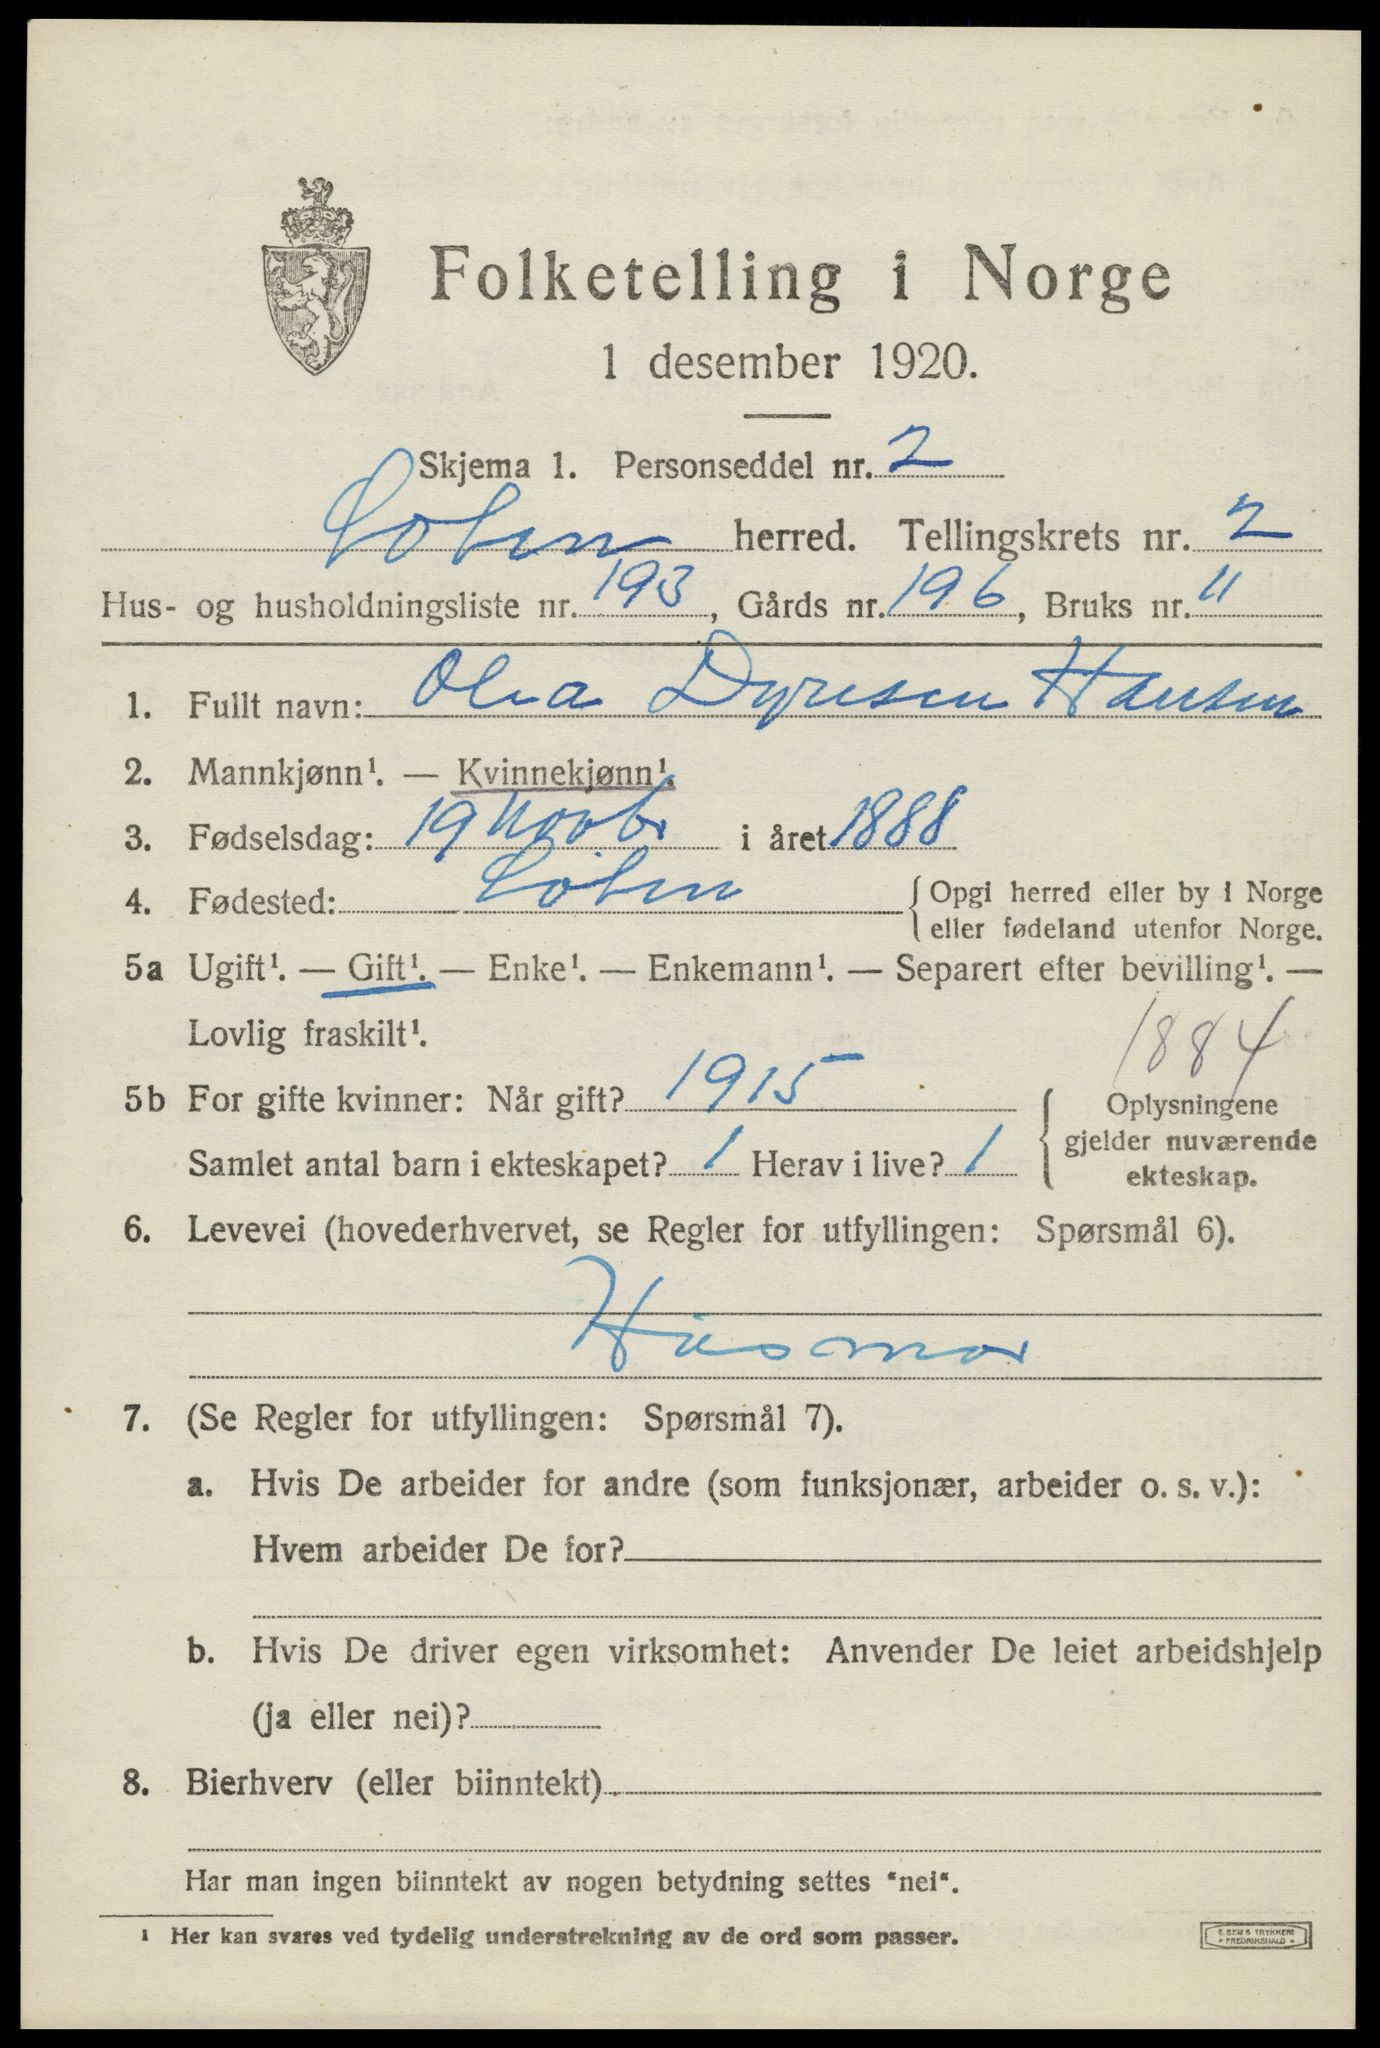 Folketelling i Norge
1 desember 1920.
Skjema 1. Personseddel nr. 2
Løten herred. Tellingskrets nr. 2
Hus- og husholdningsliste nr. 193, Gårds nr. 196, Bruks nr. 11
1. Fullt navn: Olea Dyresen Hansen
2. Mannkjønn¹. — Kvinnekjønn¹.
3. Fødselsdag: 19 Novbr i året 1888
4. Fødested: Løten { Opgi herred eller by i Norge
eller fødeland utenfor Norge.
5a Ugift¹. — Gift¹. — Enke¹. — Enkemann¹. — Separert efter bevilling¹. —
Lovlig fraskilt¹.
1884
5b For gifte kvinner: Når gift? 1915
Samlet antal barn i ekteskapet? 1 Herav i live? 1
{ Oplysningene
gjelder nuværende
ekteskap.
6. Levevei (hovederhvervet, se Regler for utfyllingen: Spørsmål 6).
Husmor
7. (Se Regler for utfyllingen: Spørsmål 7).
a. Hvis De arbeider for andre (som funksjonær, arbeider o. s. v.):
Hvem arbeider De for?
b. Hvis De driver egen virksomhet: Anvender De leiet arbeidshjelp
(ja eller nei)?
8. Bierhverv (eller biinntekt)
Har man ingen biinntekt av nogen betydning settes "nei".
¹ Her kan svares ved tydelig understrekning av de ord som passer.
E. SEM'S TRYKKERI
FREDRIKSHALD